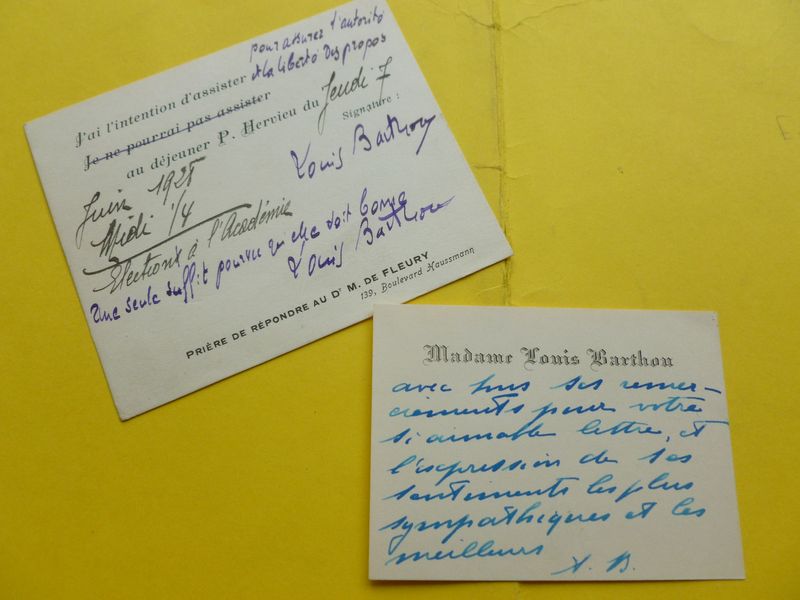 pour assurer l'autorité
et la liberté des propos
J'ai l'intention d'assister
Je ne pourrai pas assister
au déjeuner P. Hervieu du Jeudi 7
Signature :
Louis Barthou
Juin 1928
Midi 1/4
Elections à l'Académie
Une seule suffit pourvu qu'elle soit bonne
Louis Barthou
PRIÈRE DE RÉPONDRE AU Dr M. DE FLEURY
139, Boulevard Haussmann
Madame Louis Barthou
avec tous ses remer-
ciements pour votre
si aimable lettre, et
l'expression de ses
sentiments les plus
sympathiques et les
meilleurs
A. B.